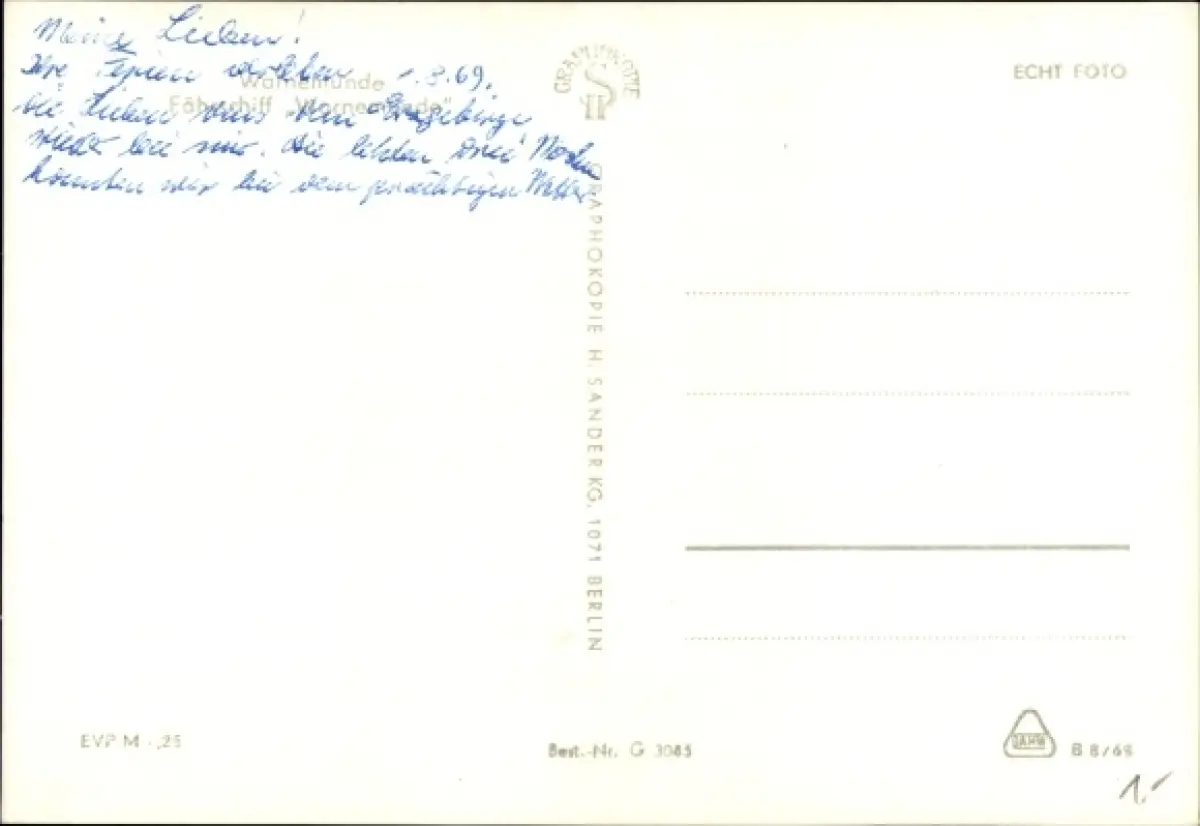 Meine Lieben!
Ihre Ferien verleben .8.69.
Warnemünde
Fährschiff „Warnemünde"
die Lieben aus dem Erzgebirge
wieder bei mir. Die letzten drei Wochen
konnten wir bei dem prächtigen Wetter
ECHT FOTO
GRAPHOKOPIE H. SANDER KG, 1071 BERLIN
EVP M -,25
Best.-Nr. G 3085
B 8/68
1,-